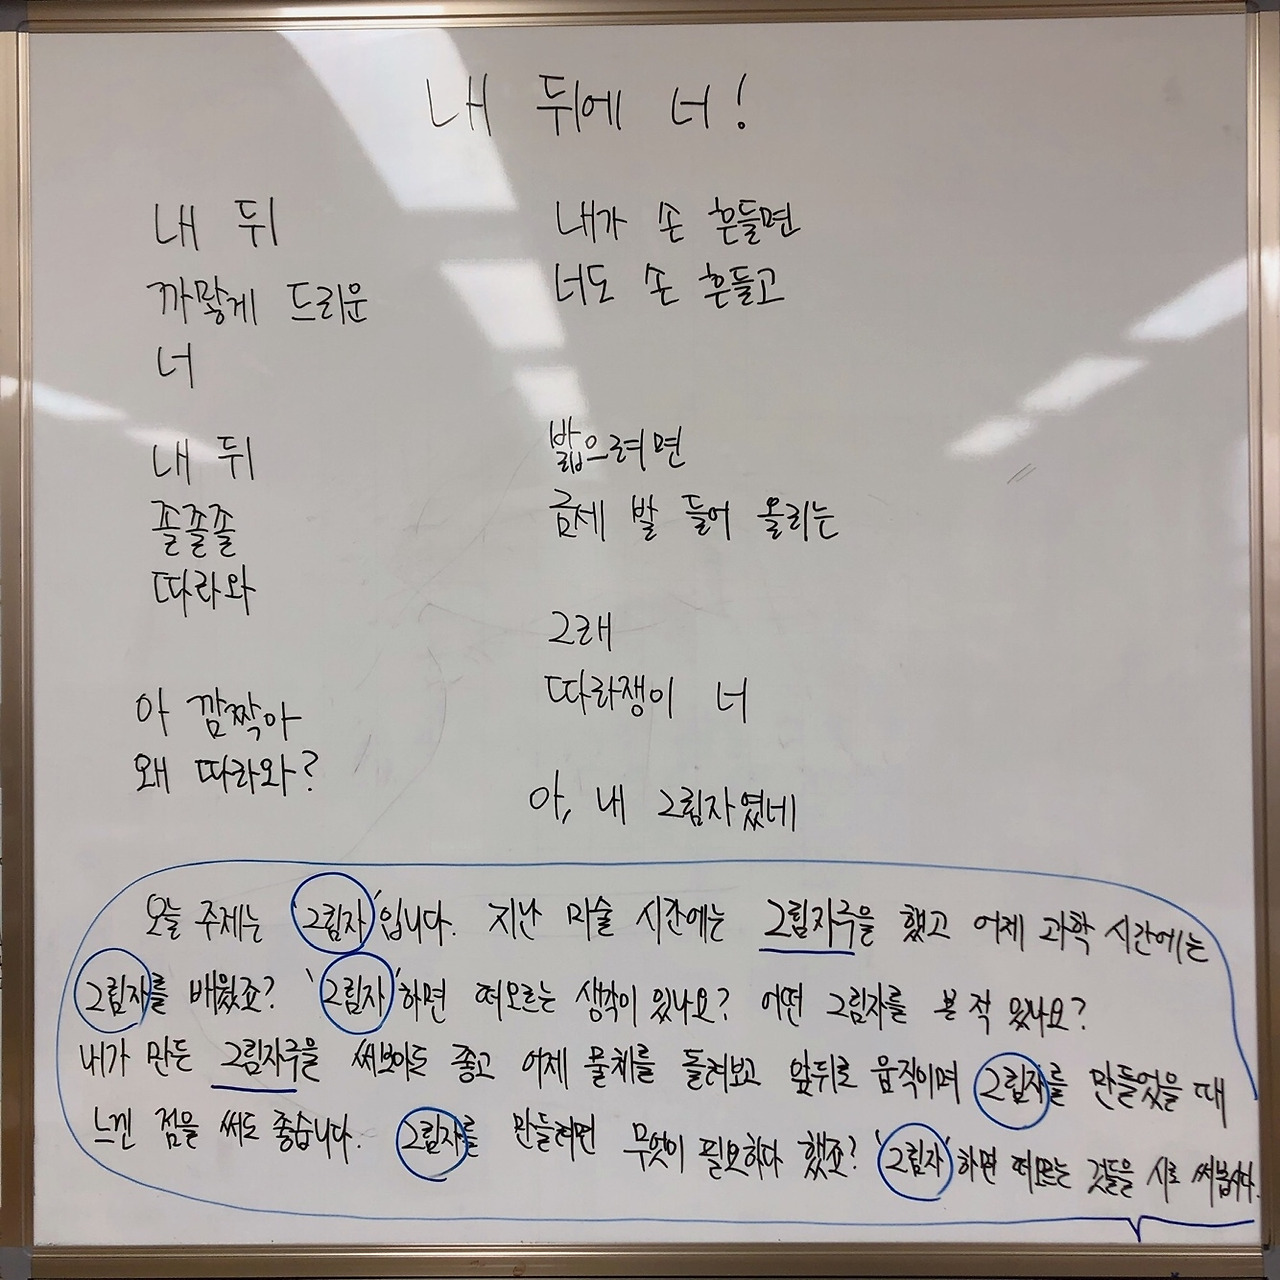 내 뒤에 너!
내 뒤
까맣게 드리운
너
내 뒤
졸졸졸
따라와
아 깜짝아
왜 따라와?
내가 손 흔들면
너도 손 흔들고
밟으려면
금세 발 들어 올리는
그래
따라쟁이 너
아, 내 그림자였네
오늘 주제는 '그림자'입니다. 지난 미술 시간에는 그림자극을 했고 어제 과학 시간에는
그림자를 배웠죠? '그림자'하면 떠오르는 생각이 있나요? 어떤 그림자를 본 적 있나요?
내가 만든 그림자극을 써보아도 좋고 어제 물체를 돌려보고 앞뒤로 움직이며 그림자를 만들었을 때
느낀 점을 써도 좋습니다. 그림자를 만들려면 무엇이 필요하다 했죠? '그림자'하면 떠오르는 것들을 시로 써봅시다.